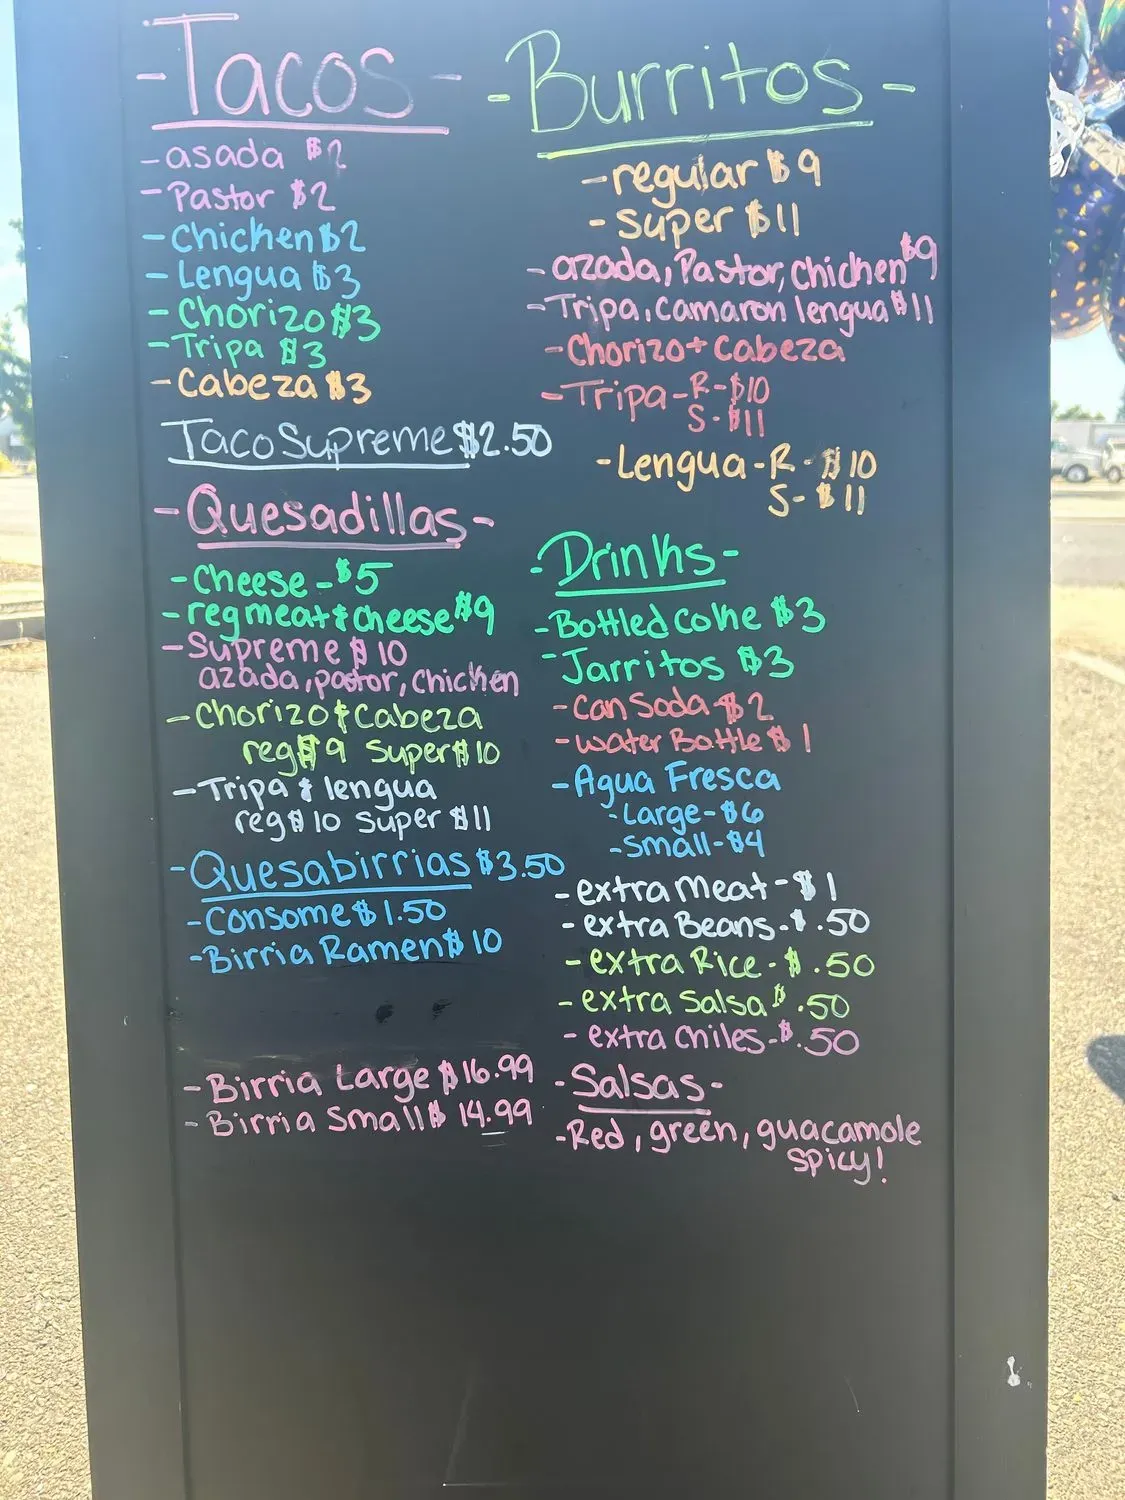 -Tacos-
-asada $2
-Pastor $2
-Chicken $2
-Lengua $3
-Chorizo $3
-Tripa $3
-Cabeza $3
Taco Supreme $2.50
-Quesadillas-
-Cheese-$5
-reg meat & cheese $9
-Supreme $10
azada, pastor, chicken
-Chorizo & Cabeza
reg $9 Super $10
-Tripa & lengua
reg $10 super $11
-Quesabirrias $3.50
-Consome $1.50
-Birria Ramen $10
-Birria Large $16.99
-Birria Small $14.99
-Burritos-
-regular $9
-super $11
-azada, Pastor, Chicken $9
-Tripa, Camaron lengua $11
-Chorizo + Cabeza
-Tripa-R-$10
S-$11
-Lengua-R-$10
S-$11
-Drinks-
-Bottled Coke $3
-Jarritos $3
-Can Soda-$2
-Water Bottle $1
-Agua Fresca
-Large-$6
-small-$4
-extra Meat-$1
-extra Beans-$.50
-extra Rice-$.50
-extra Salsa $.50
-extra Chiles-$.50
-Salsas-
-Red, green, guacamole
spicy!